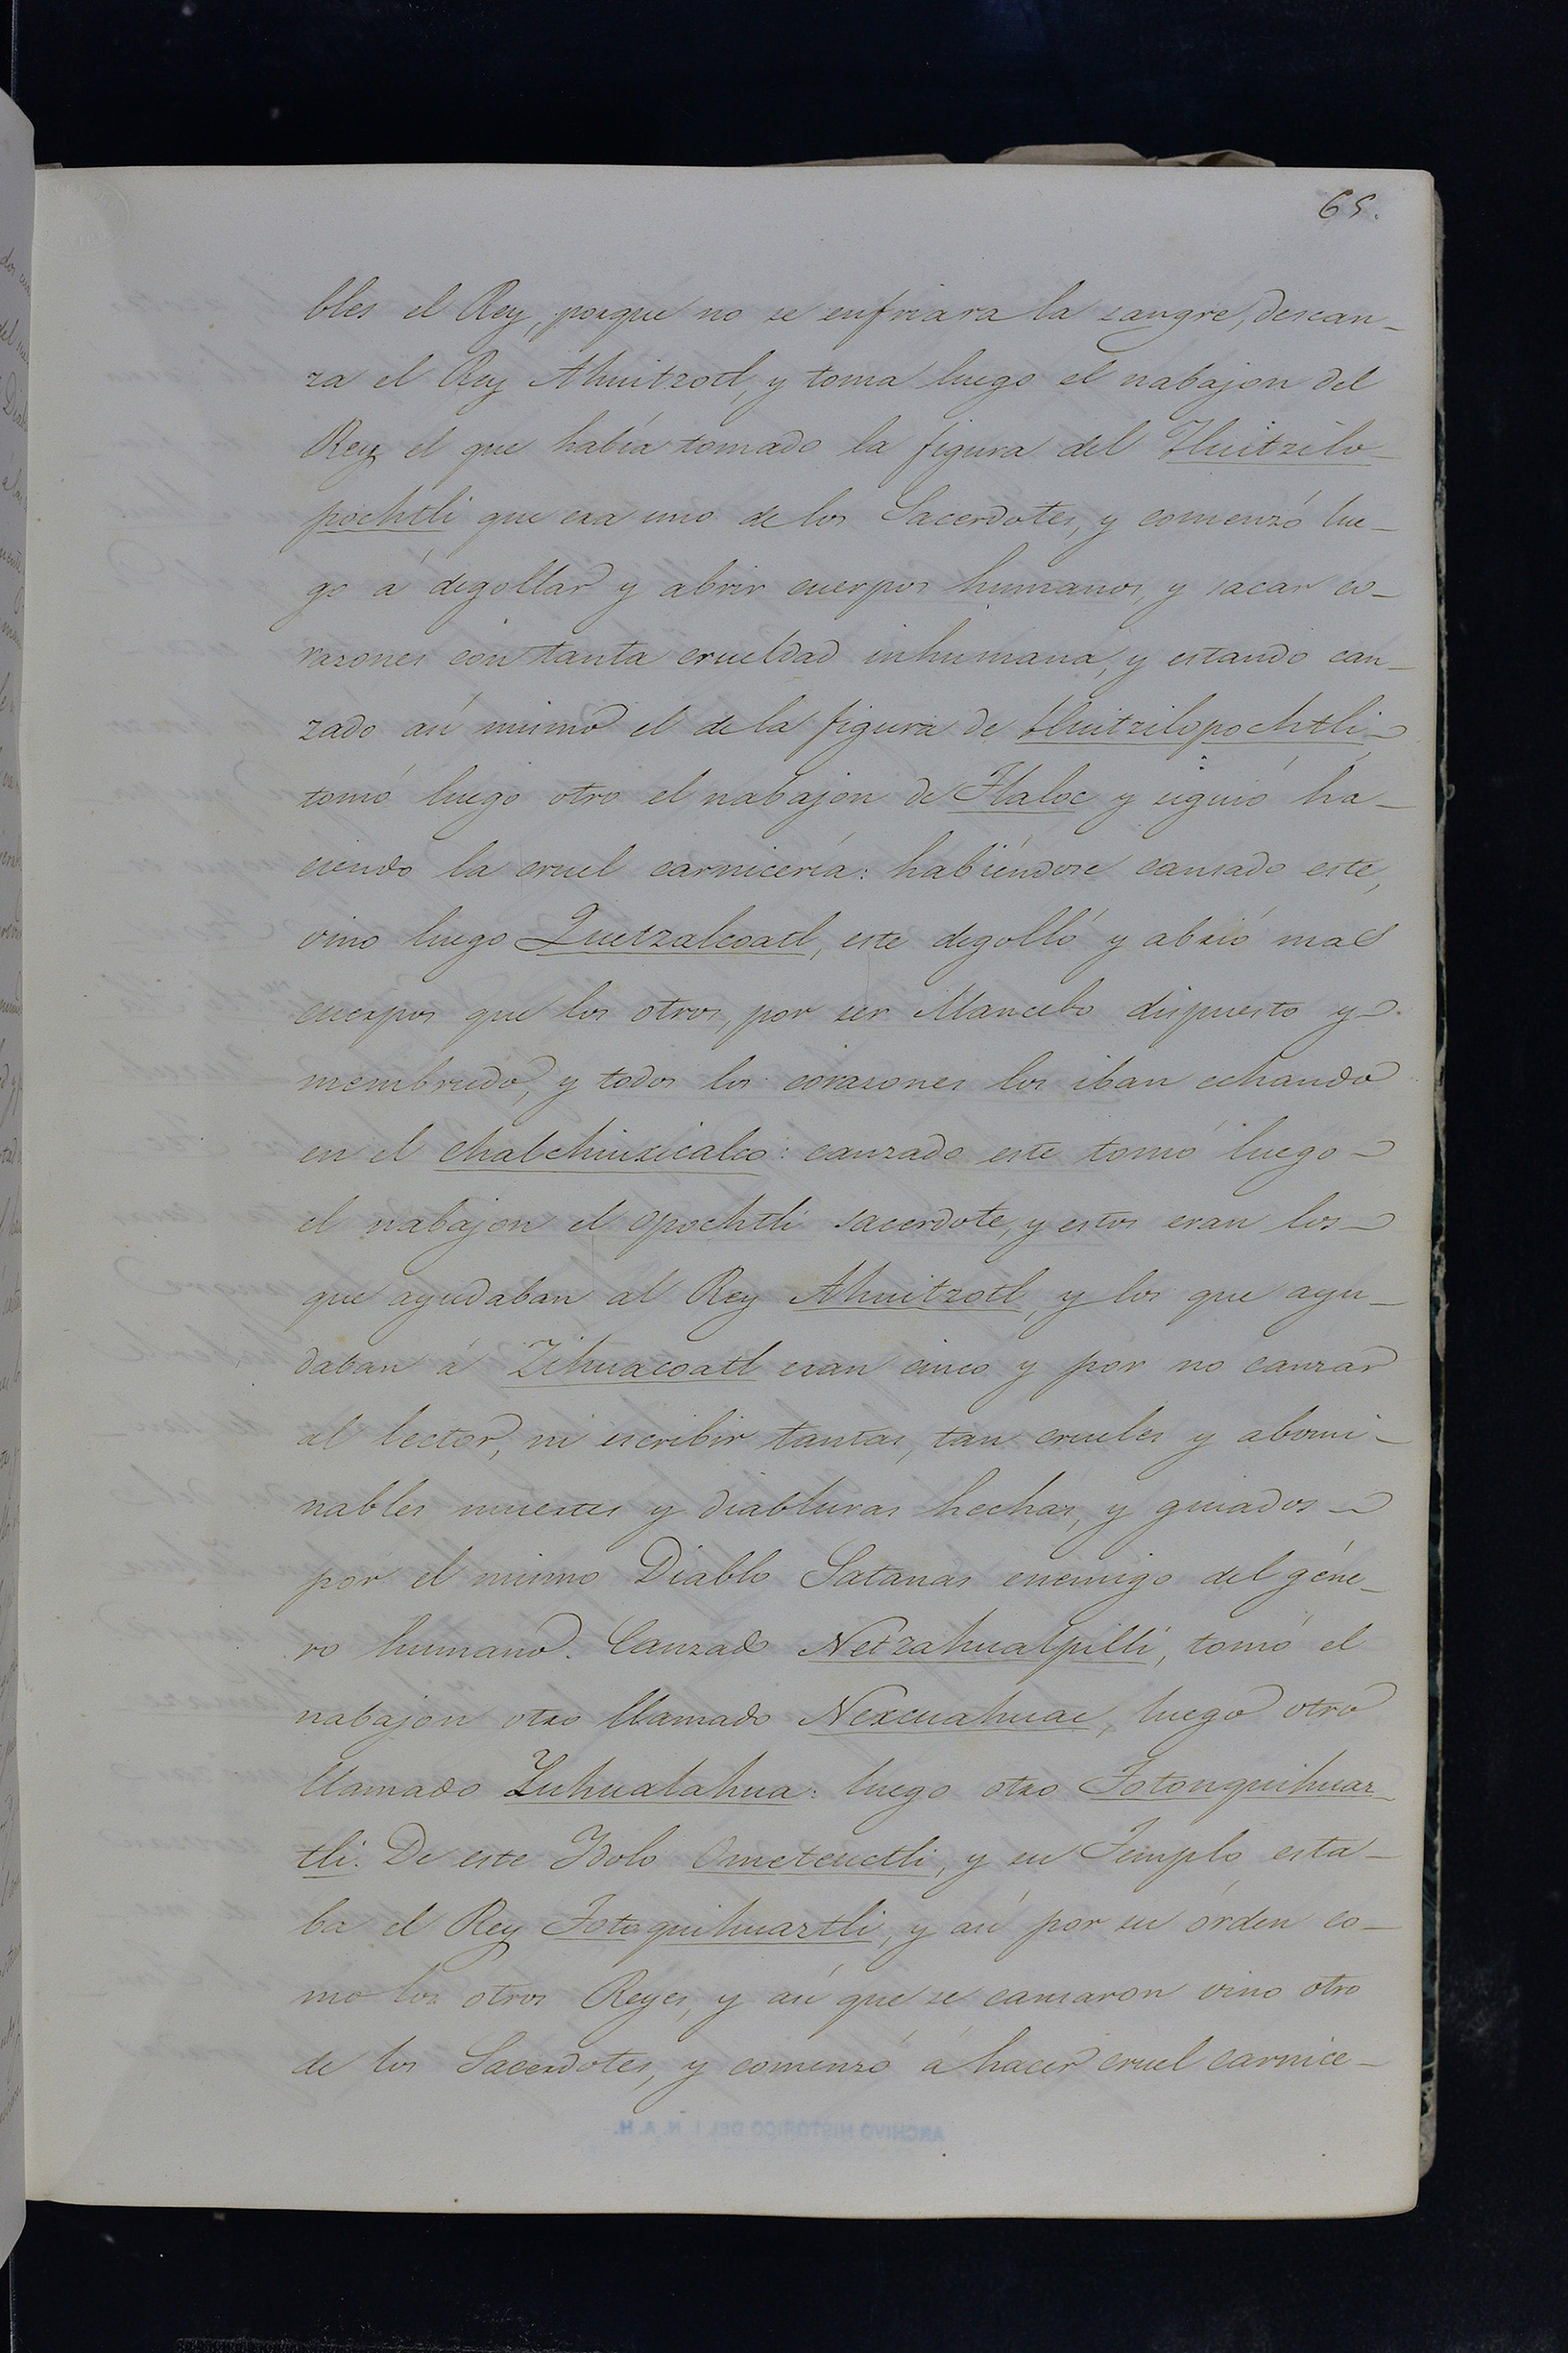 65.
bles el Rey, porque no se enfriara la sangre, descan-
za el Rey Ahuitzotl, y toma luego el nabajon del
Rey el que había tomado la figura del Huitzilo-
pochtli que era uno de los Sacerdotes, y comenzó lue-
go á degollar y abrir cuerpos humanos, y sacar co-
razones con tanta crueldad inhumana, y estando can-
zado asi mismo el de la figura de Huitzilopochtli-
tomó luego otro el nabajon de Tlaloc y siguió ha-
ciendo la cruel carnicería: habiéndose cansado este,
vino luego Quetzalcoatl, este degolló y abrió mas
cuerpos que los otros, por ser Mancebo dispuesto y-
membrudo, y todos los corazones los iban echando
en el chalchiuxicalco: canzado este tomó luego-
el nabajon el opochtli sacerdote, y estos eran los-
que ayudaban al Rey Ahuitzotl, y los que ayu-
daban á Zihuacoatl eran cinco y por no canzar
al lector, ni escribir tantas, tan crueles y abomi-
nables muertes y diabluras hechas, y guiados-
por el mismo Diablo Satanas enemigo del géne-
ro humano. Canzado Netzahualpilli, tomó el
nabajon otro llamado Nexcuahuac, luego otro
llamado Yuhualahua: luego otro Totonquihuaz-
tli. De este Ydolo Ometeuctli, y su Templo esta-
ba el Rey Totoquihuaztli, y asi por su órden co-
mo los otros Reyes, y asi que se cansaron vino otro
de los Sacerdotes, y comenzó á hacer cruel carnice-
ARCHIVO HISTORICO DEL I. N. A. H.